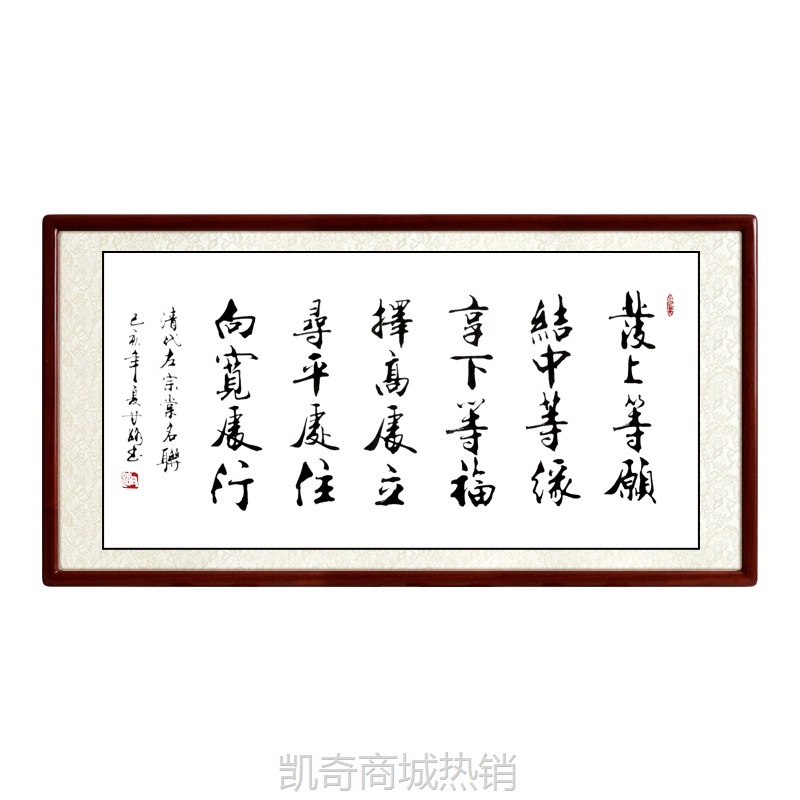 發上等願
結中等緣
享下等福
擇高處立
尋平處住
向寬處行
清代左宗棠名聯
己亥年夏甘露書
凯奇商城热销